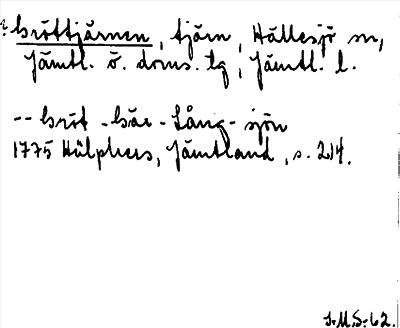 ? bröttjärnen, tjärn, Hällesjö sn,
Jämtl. ö. doms. lg, Jämtl. l.
-- bröt - bär - Lång - sjön
1775 Hülphers, Jämtland, s. 214.
J.M.S-62.